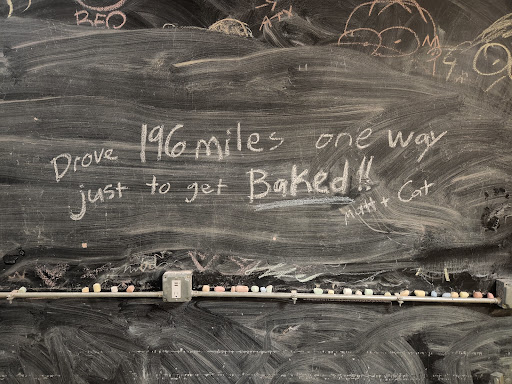 BFO
Drove 196 miles one way
just to get Baked!!
Matt + Cat